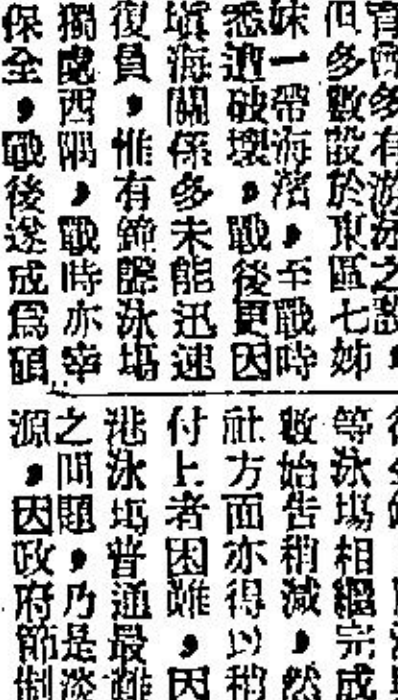 多有游泳之設
但多數設於東區七姊
妹一帶海濱，至戰時
悉遭破壞，戰後更因
塡海關係多未能迅速
復員，惟有鐘聲泳場
獨處西隅，戰時亦幸
保全，戰後遂成爲碩
等泳場相繼完成
數始告稍減，然
社方面亦得以稍
付上者困難，因
港泳場普通最難
之問題，乃是淡
源，因政府節制